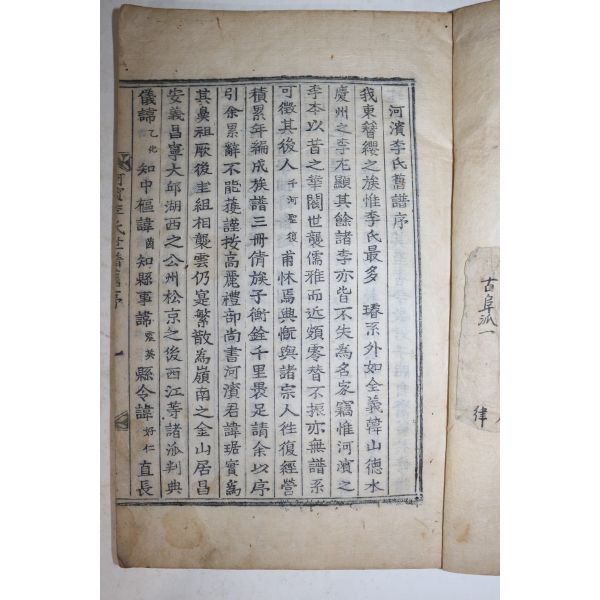 河濱李氏舊譜序
我東簪纓之族惟李氏最多 璿系外如全義韓山德水
慶州之李尤顯其餘諸李亦皆不失為名家竊惟河濱之
李本以昔之華閥世襲儒雅而近頗零替不振亦無譜系
可徵其後人千河聖復甫怵焉興慨與諸宗人往復經營
積累年編成族譜三冊倩族子衡銓千里裹足請余以序
引余累辭不能獲謹按高麗禮部尚書河濱君諱琚實為
其鼻祖厥後主組相襲雲仍寔繁散為嶺南之金山居昌
安義昌寧大邱湖西之公州松京之後西江等諸派判典
儀諱乙化知中樞諱茵知縣事諱震英縣令諱好仁直長
河濱李氏世譜舊序 一
古阜派一
律